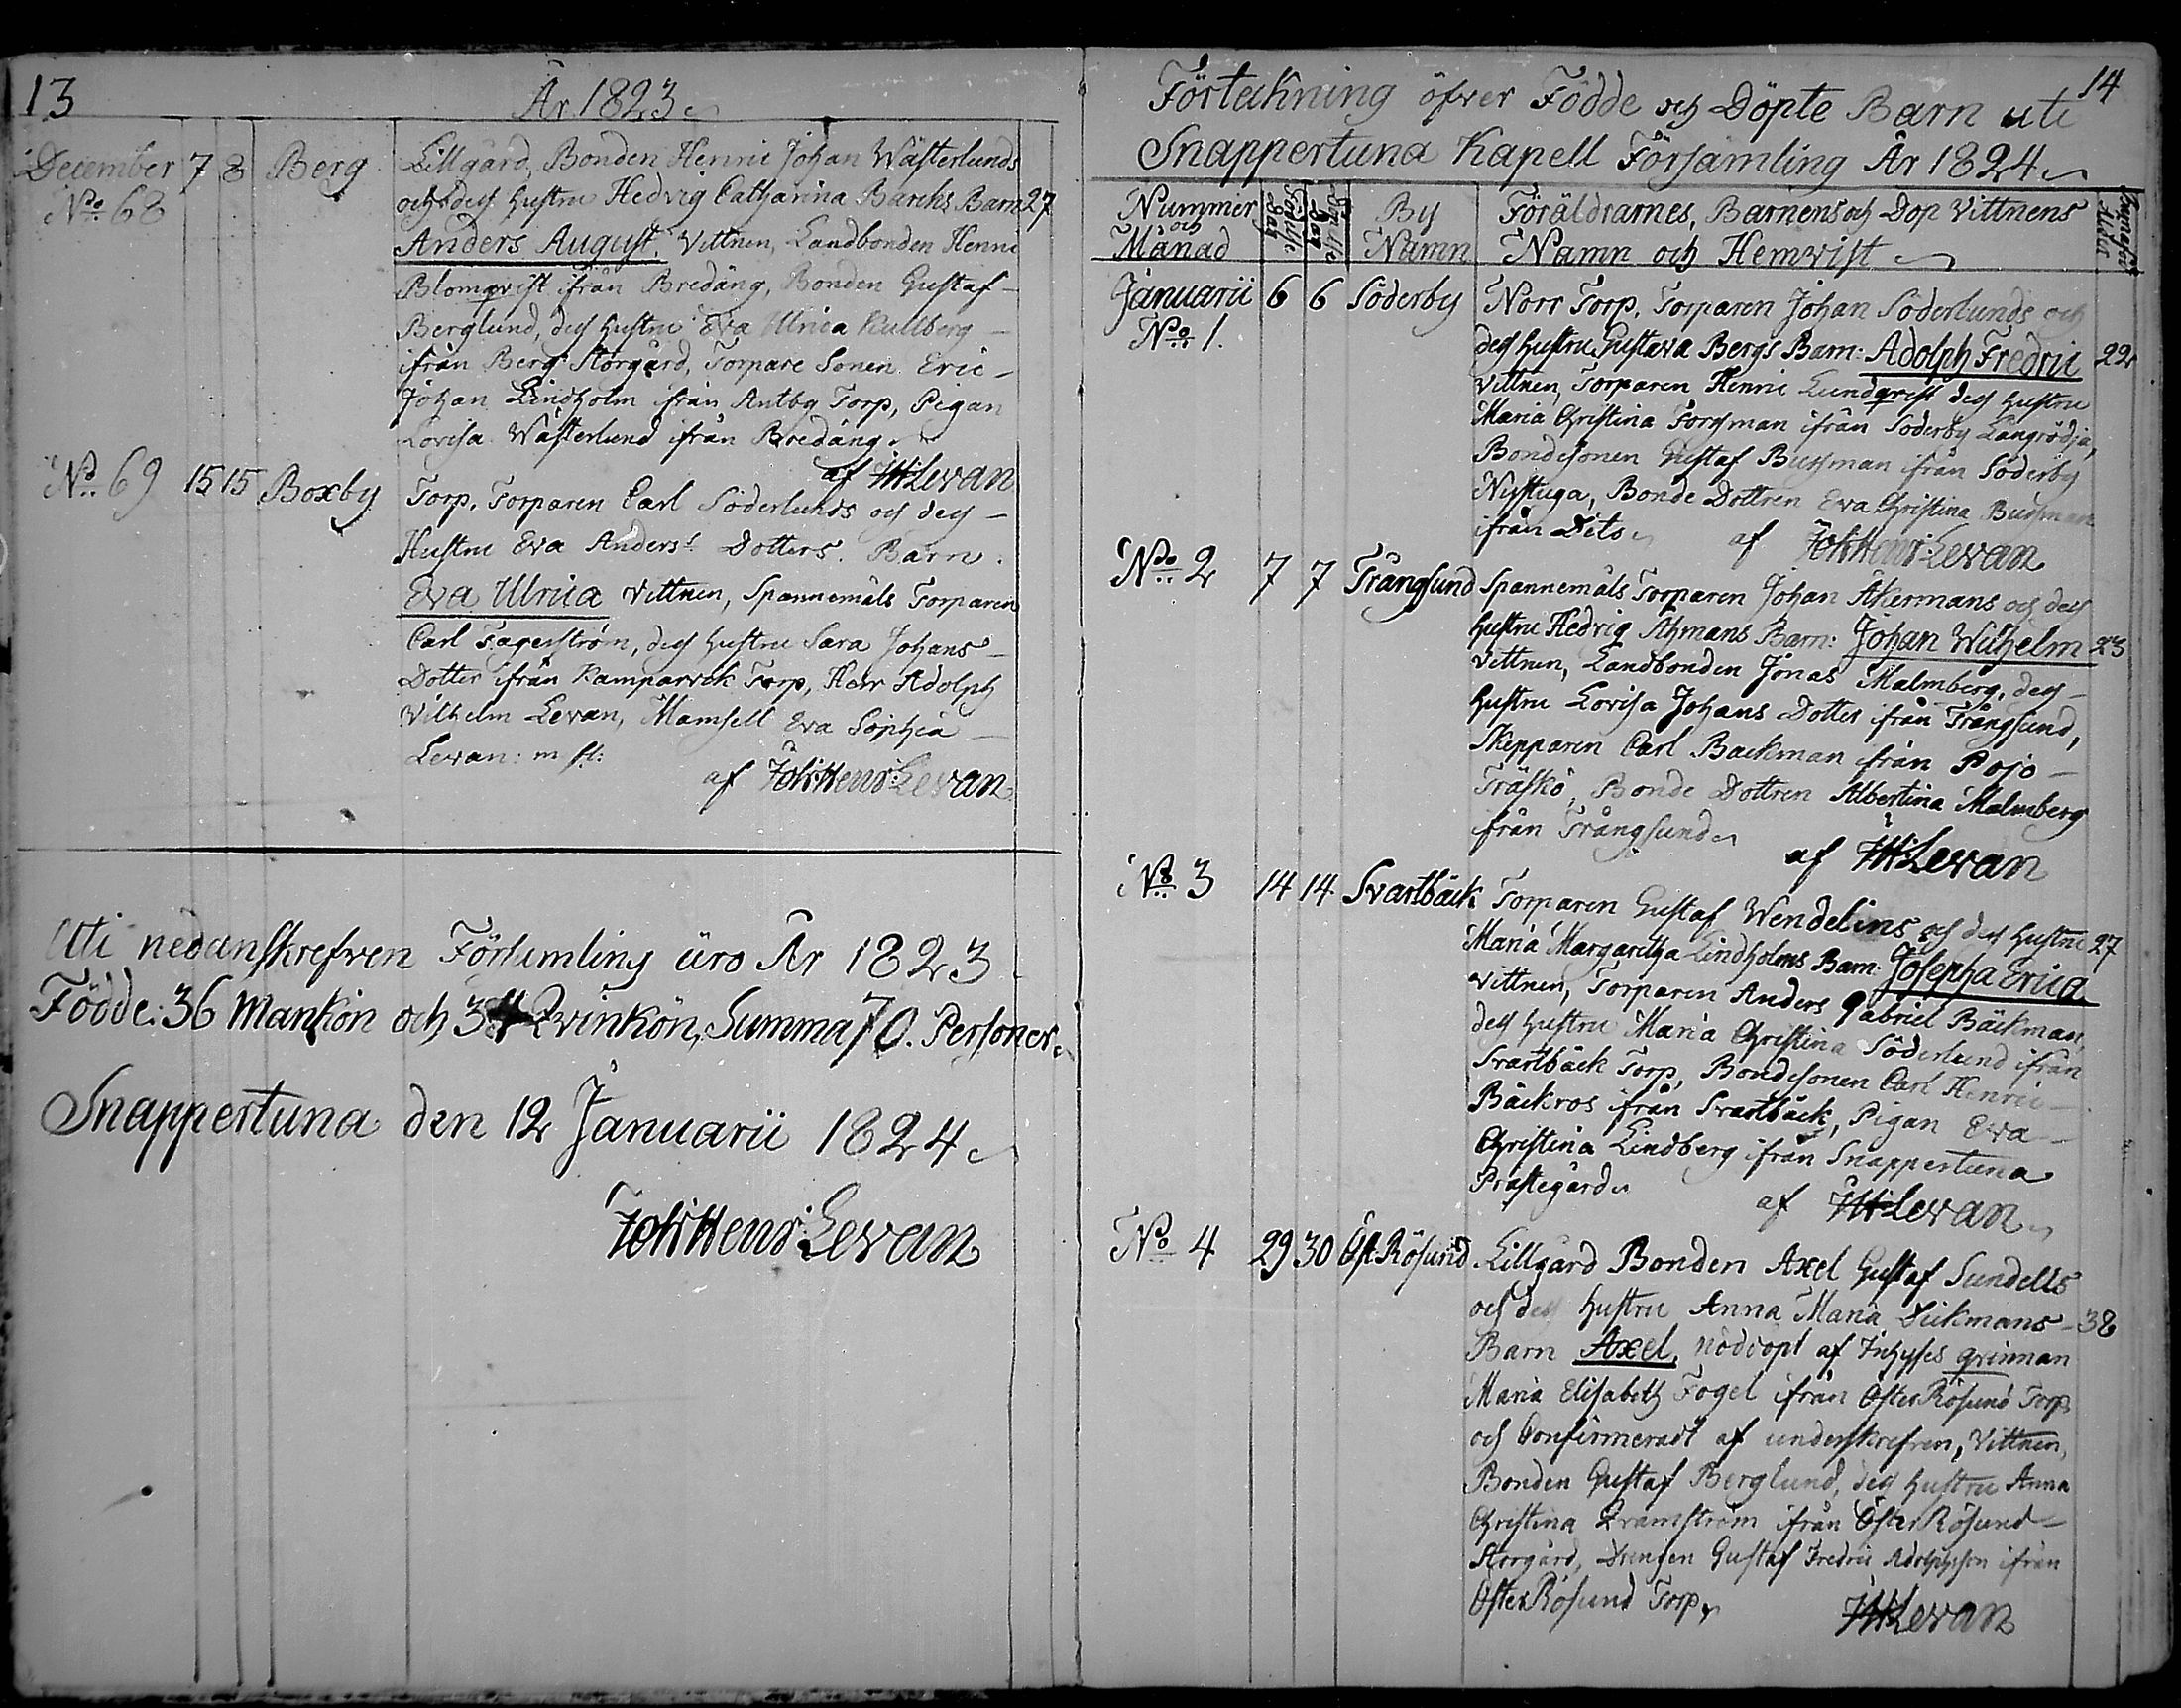 13
År 1823
December 7 8 Berg Lillgård, Bonden Henric Johan Wästerlunds
No. 68 och dess hustru Hedvig Catharina Barcks Barn 27
Anders August. Vittnen, Landbonden Henric
Blomqvist ifrån Bredäng, Bonden Gustaf
Berglund, dess hustru Eva Ulrica Kullberg
ifrån Berg Storgård, Torpare Sonen Eric
Johan Lindholm ifrån Antby Torp, Pigan
Lovisa Wästerlund ifrån Bredäng.
af JHLevan
No. 69 15 15 Boxby Torp, Torparen Carl Söderlunds och dess
Hustru Eva Anders Dotters. Barn.
Eva Ulrica Vittnen, Spannemåls Torparen
Carl Fagerström, dess hustru Sara Johans
Dotter ifrån Kamparvik Torp, Herr Adolph
Vilhelm Levan, Mamsell Eva Sophia
Levan: m fl:
af Joh: Henr: Levan
Uti nedanskrefven Församling äro År 1823
Födde: 36 Mankön och 34 Qvinkön, Summa 70. Personer.
Snappertuna den 12 Januarii 1824
Joh: Henr: Levan
14
Förteckning öfver Födde och Döpte Barn uti
Snappertuna Kapell Församling År 1824
Nummer och Månad Födde Dag Döpte Dag By Namn Föräldrarnes, Barnens och Dop Vittnens
Namn och Hemvist
Januarii 6 6 Söderby Norr Torp, Torparen Johan Söderlunds och
No. 1. dess hustru Gustava Bergs Barn: Adolph Fredric 22
Vittnen, Torparen Henric Lundqvist dess hustru
Maria Christina Forssman ifrån Söderby Långrödja,
Bondesonen Gustaf Bussman ifrån Söderby
Nystuga, Bonde Dottren Eva Christina Bussman
ifrån Dito
af Joh: Henr: Levan
No. 2 7 7 Trångsund Spannemåls Torparen Johan Åkermans och dess
hustru Hedvig Åhmans Barn: Johan Wilhelm 23
Vittnen, Landbonden Jonas Malmberg, dess
hustru Lovisa Johans Dotter ifrån Trångsund,
Skepparen Carl Backman ifrån Pojo
Träskö, Bonde Dottren Albertina Malmberg
ifrån Trångsund
af JHLevan
No. 3 14 14 Svartbäck Torparen Gustaf Wendelins och dess hustru 27
Maria Margaretha Lindholms Barn: Josepha Erica
Vittnen, Torparen Anders Gabriel Bäckman,
dess hustru Maria Christina Söderlund ifrån
Svartbäck Torp, Bondesonen Carl Henric
Bäckros ifrån Svartbäck, Pigan Eva
Christina Lindberg ifrån Snappertuna
Prästegård
af JHLevan
No. 4 29 30 Öst. Rösund Lillgård Bonden Axel Gustaf Sundells
och dess hustru Anna Maria Dickmans 38
Barn Axel, nöddöpt af Inhyses qvinnan
Maria Elisabeth Fogel ifrån Öster Rösund Torp
och Confirmeradt af underskrefven, Vittnen,
Bonden Gustaf Berglund, dess hustru Anna
Christina Qvarnström ifrån Öster Rösund
Storgård, Drengen Gustaf Fredric Adolphsson ifrån
Öster Rösund Torp
JHLevan